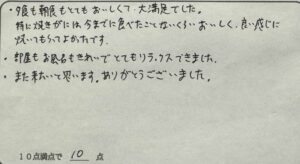 ・夕食も朝食もとてもおいしくて、大満足でした。
特に焼きがには、今までに食べたことないくらいおいしく、良い感じに
焼いてもらってよかったです。
・部屋もお風呂もきれいでとてもリラックスできました。
・また来たいと思います。ありがとうございました。
10点満点で 10 点